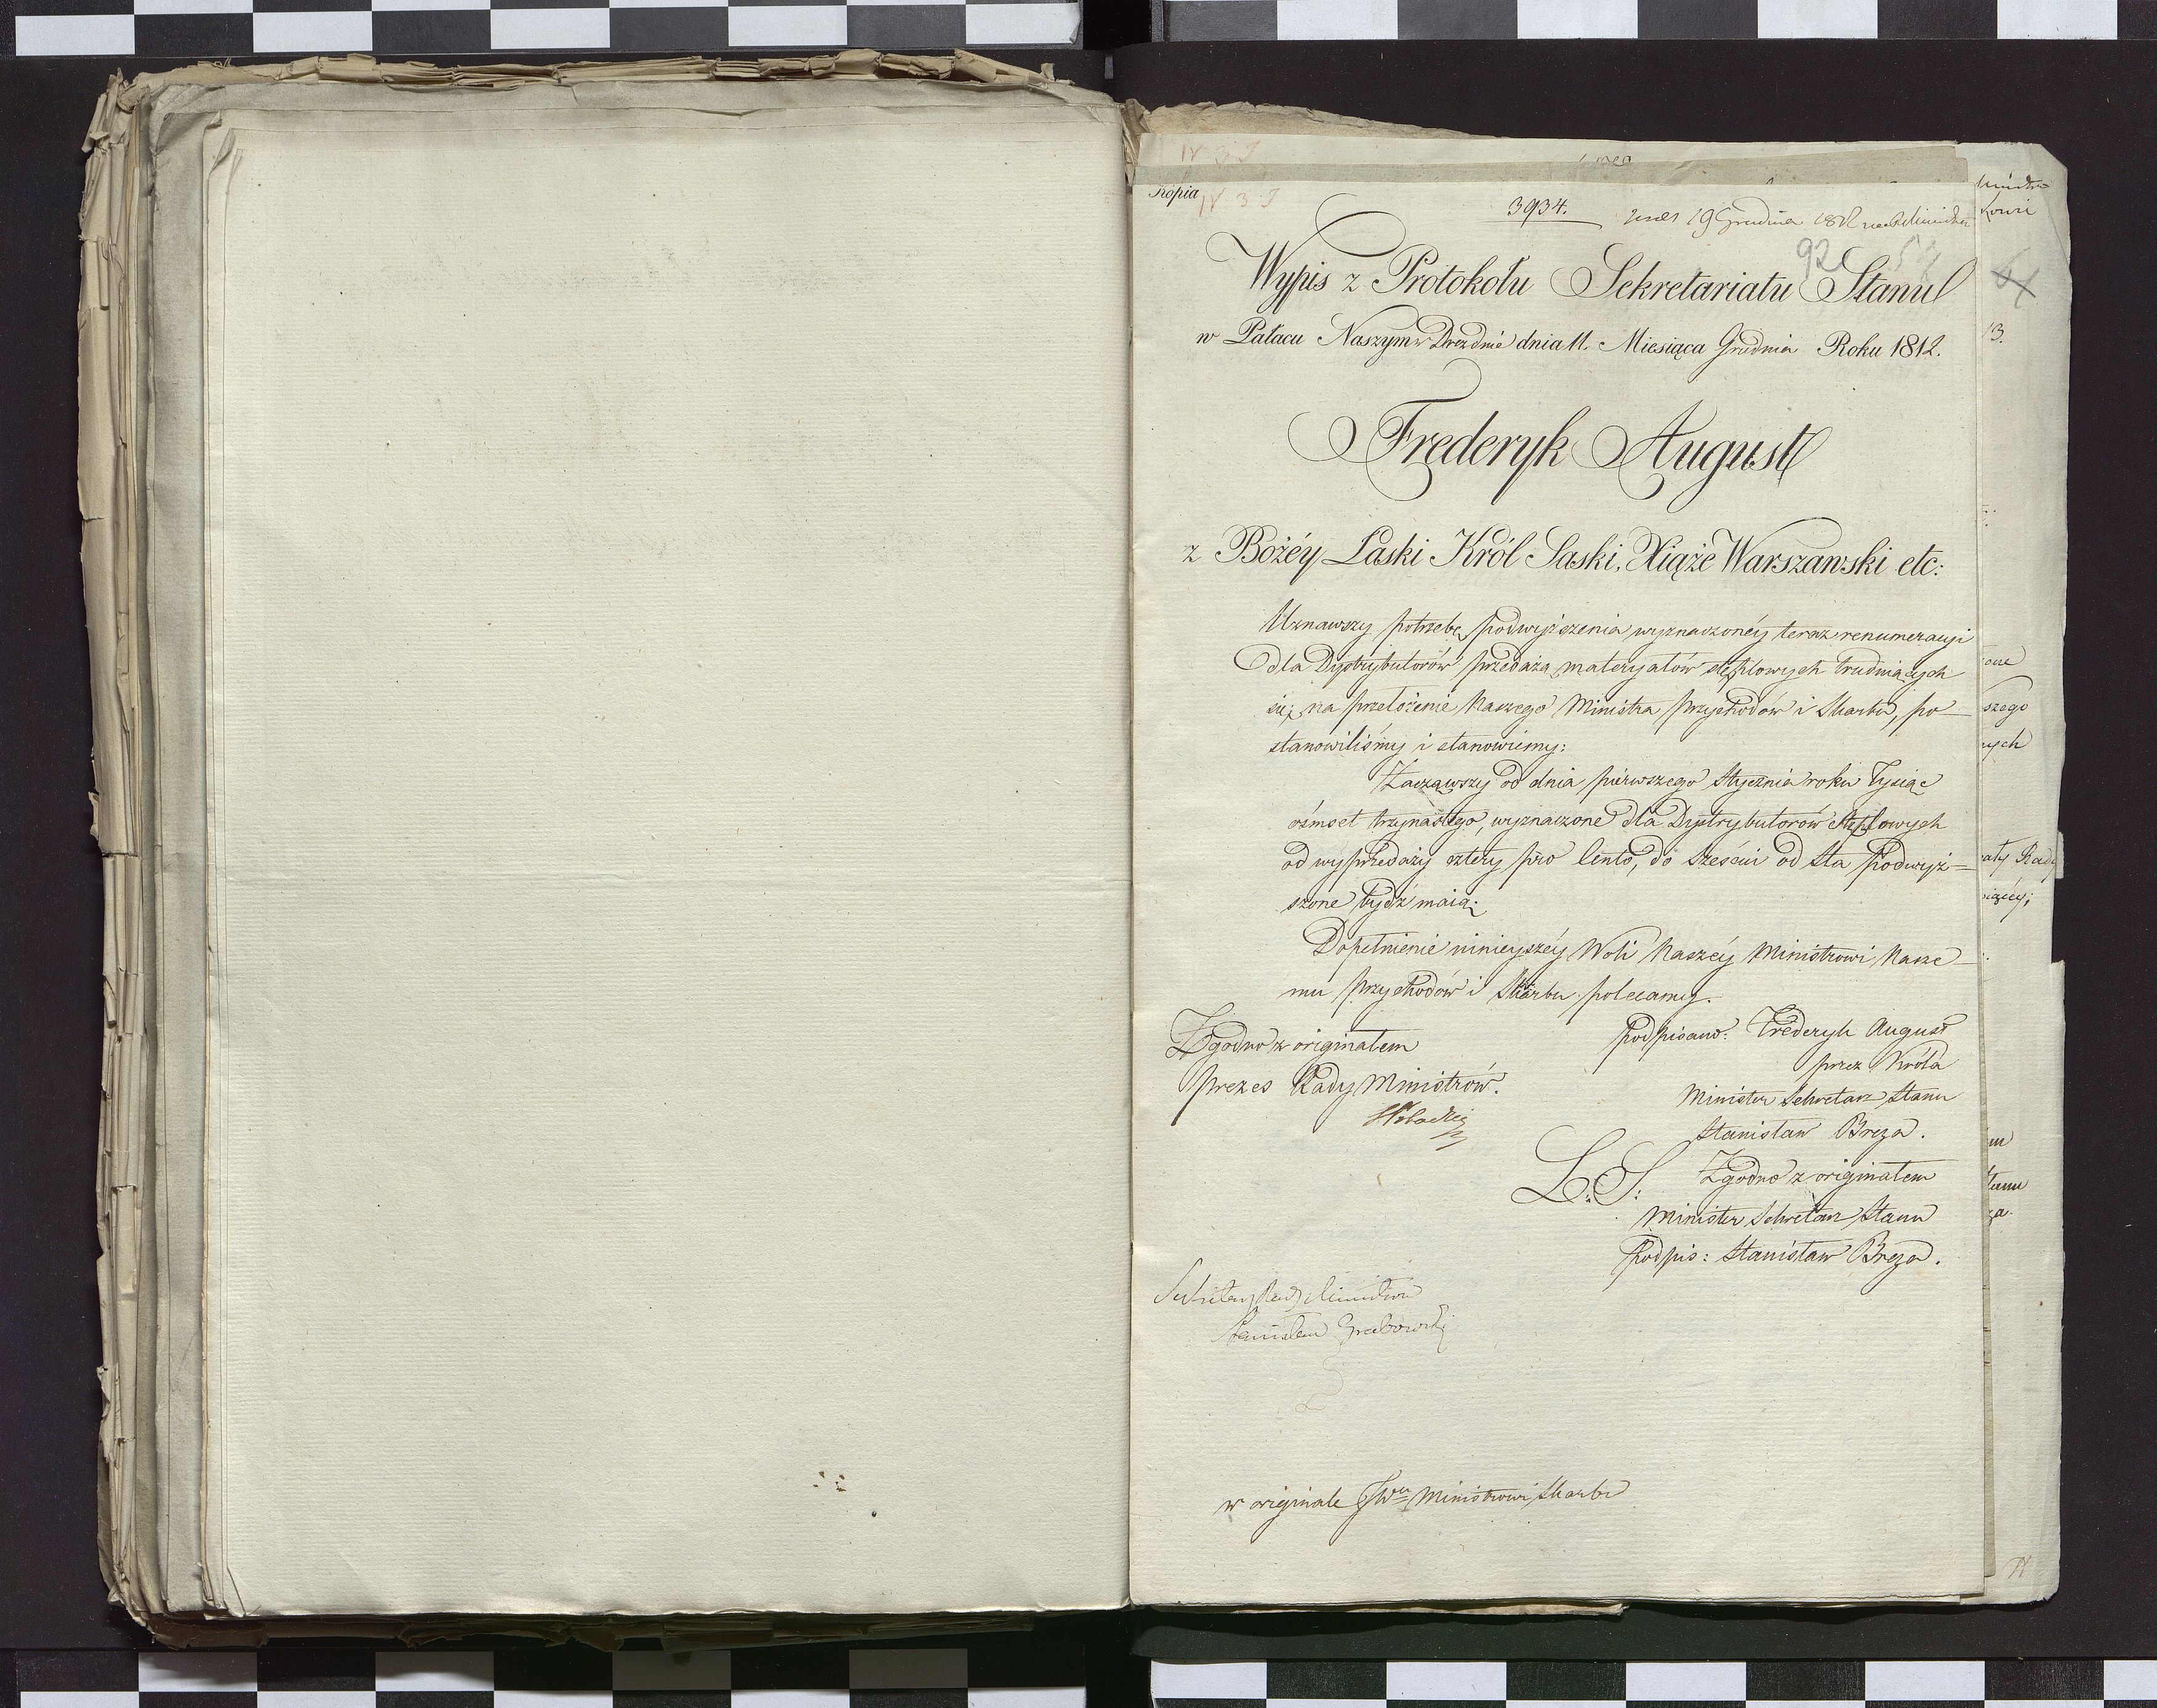 IV 3 J
Kopia
IV 3 J
3934.
19 Grudnia
92
Wypis z Protokołu Sekretariatu Stanu
w Pałacu Naszym w Dreznie dnia 11. Miesiąca Grudnia Roku 1812.
Frederyk August
z Bożéy Łaski Król Saski, Xiąże Warszawski etc:
Uznawszy potrzebę podwyższenia wyznaczonéy teraz renumeracyi
dla Dystrybutorów przedażą materyałów steplowych trudniących
się, na przełożenie Naszego Ministra Przychodów i Skarbu, po-
stanowiliśmy i stanowiemy:
Zacząwszy od dnia pierwszego Stycznia roku Tysiąc
óśmset trzynastego, wyznaczone dla Dystrybutorów Steplowych
od wyprzedaży cztery pro Cento, do Sześciu od Sta podwyż=
szone bydź maią.
Dopełnienie ninieyszéy Woli Naszéy Ministrowi Nasze-
mu Przychodów i Skarbu polecamy.
Zgodno z originałem
Prezes Rady Ministrów.
podpisano: Frederyk August
przez Króla
Minister Sekretarz Stanu
Stanisław Breza.
L: S:
Zgodno z originałem
Minister Sekretarz Stanu
podpis: Stanisław Breza.
Sekretarz Rady Ministrów
Stanisław Grabowski
w originale JWu Ministrowi Skarbu
3.
szego
nych
aty Rady